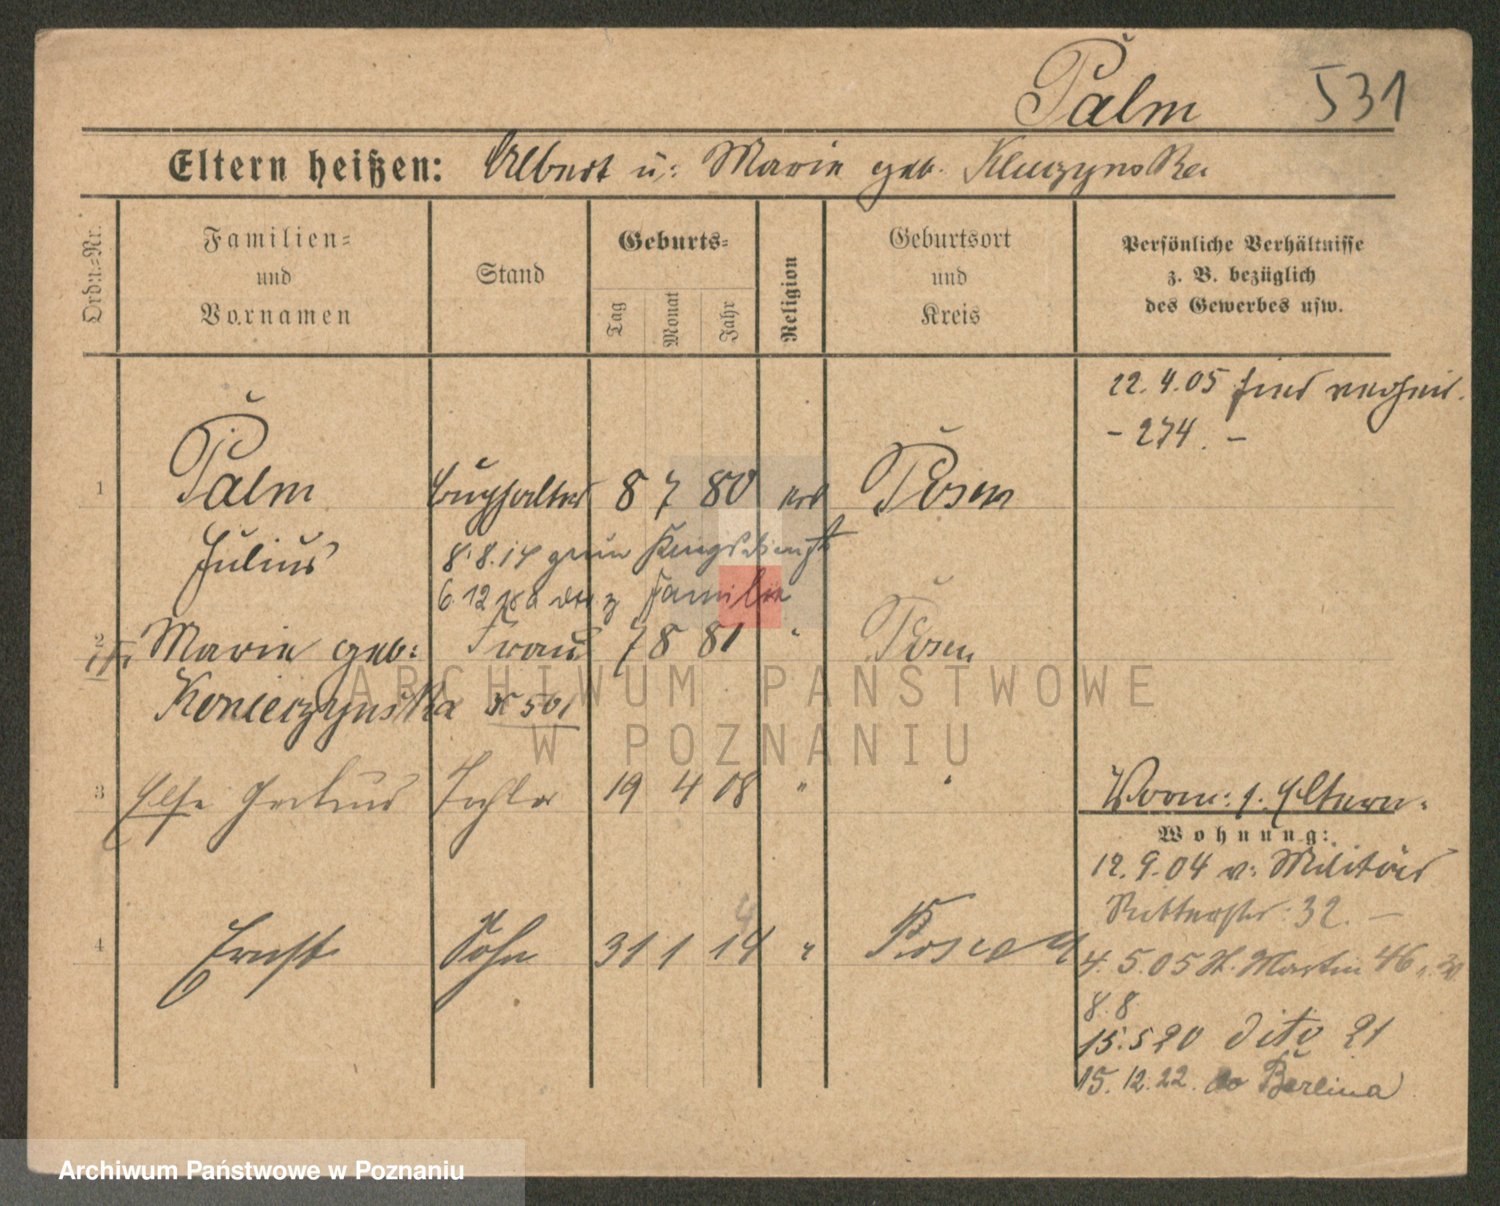 Palm 531
Eltern heißen: Albert u: Marie geb.
Ordn.-Nr.
Familien-
und
Vornamen
Stand
Geburts-
Tag
Monat
Jahr
Religion
Geburtsort
und
Kreis
Persönliche Verhältnisse
z. B. bezüglich
des Gewerbes usw.
22.4.05
- 274. -
1 Palm Buchhalter 8 7 80 Posen
Julius 8.8.14 Kriegsdienst
6.12 z Familie
2 Marie geb: Frau 7 8 81 " Posen
Konieczynska K 501
3 Else Gertrud Tochter 19 4 08 " "
Vorm: s. Eltern.
Wohnung:
12.9.04 v: Militär
Ritterstr. 32. -
4 Ernst Sohn 31 1 14 " Posen
4
4.5.05 St. Martin 46
8.8
15.5 20 dito 21
15.12.22. do Berlina
ARCHIWUM PAŃSTWOWE
W POZNANIU
Archiwum Państwowe w Poznaniu